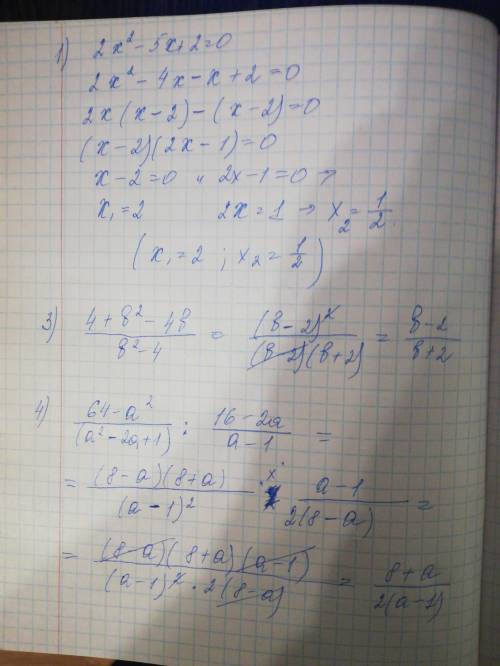 1) 2x² - 5x + 2 = 0
2x² - 4x - x + 2 = 0
2x(x - 2) - (x - 2) = 0
(x - 2)(2x - 1) = 0
x - 2 = 0 и 2x - 1 = 0 →
x₁ = 2 2x = 1 → x₂ = 1/2
(x₁ = 2 ; x₂ = 1/2)
3) (4 + b² - 4b)/(b² - 4) = (b - 2)²/((b - 2)(b + 2)) = (b - 2)/(b + 2)
4) (64 - a²)/(a² - 2a + 1) : (16 - 2a)/(a - 1) =
= ((8 - a)(8 + a))/(a - 1)² × (a - 1)/(2(8 - a)) =
= ((8 - a)(8 + a)(a - 1))/((a - 1)² · 2(8 - a)) = (8 + a)/(2(a - 1))